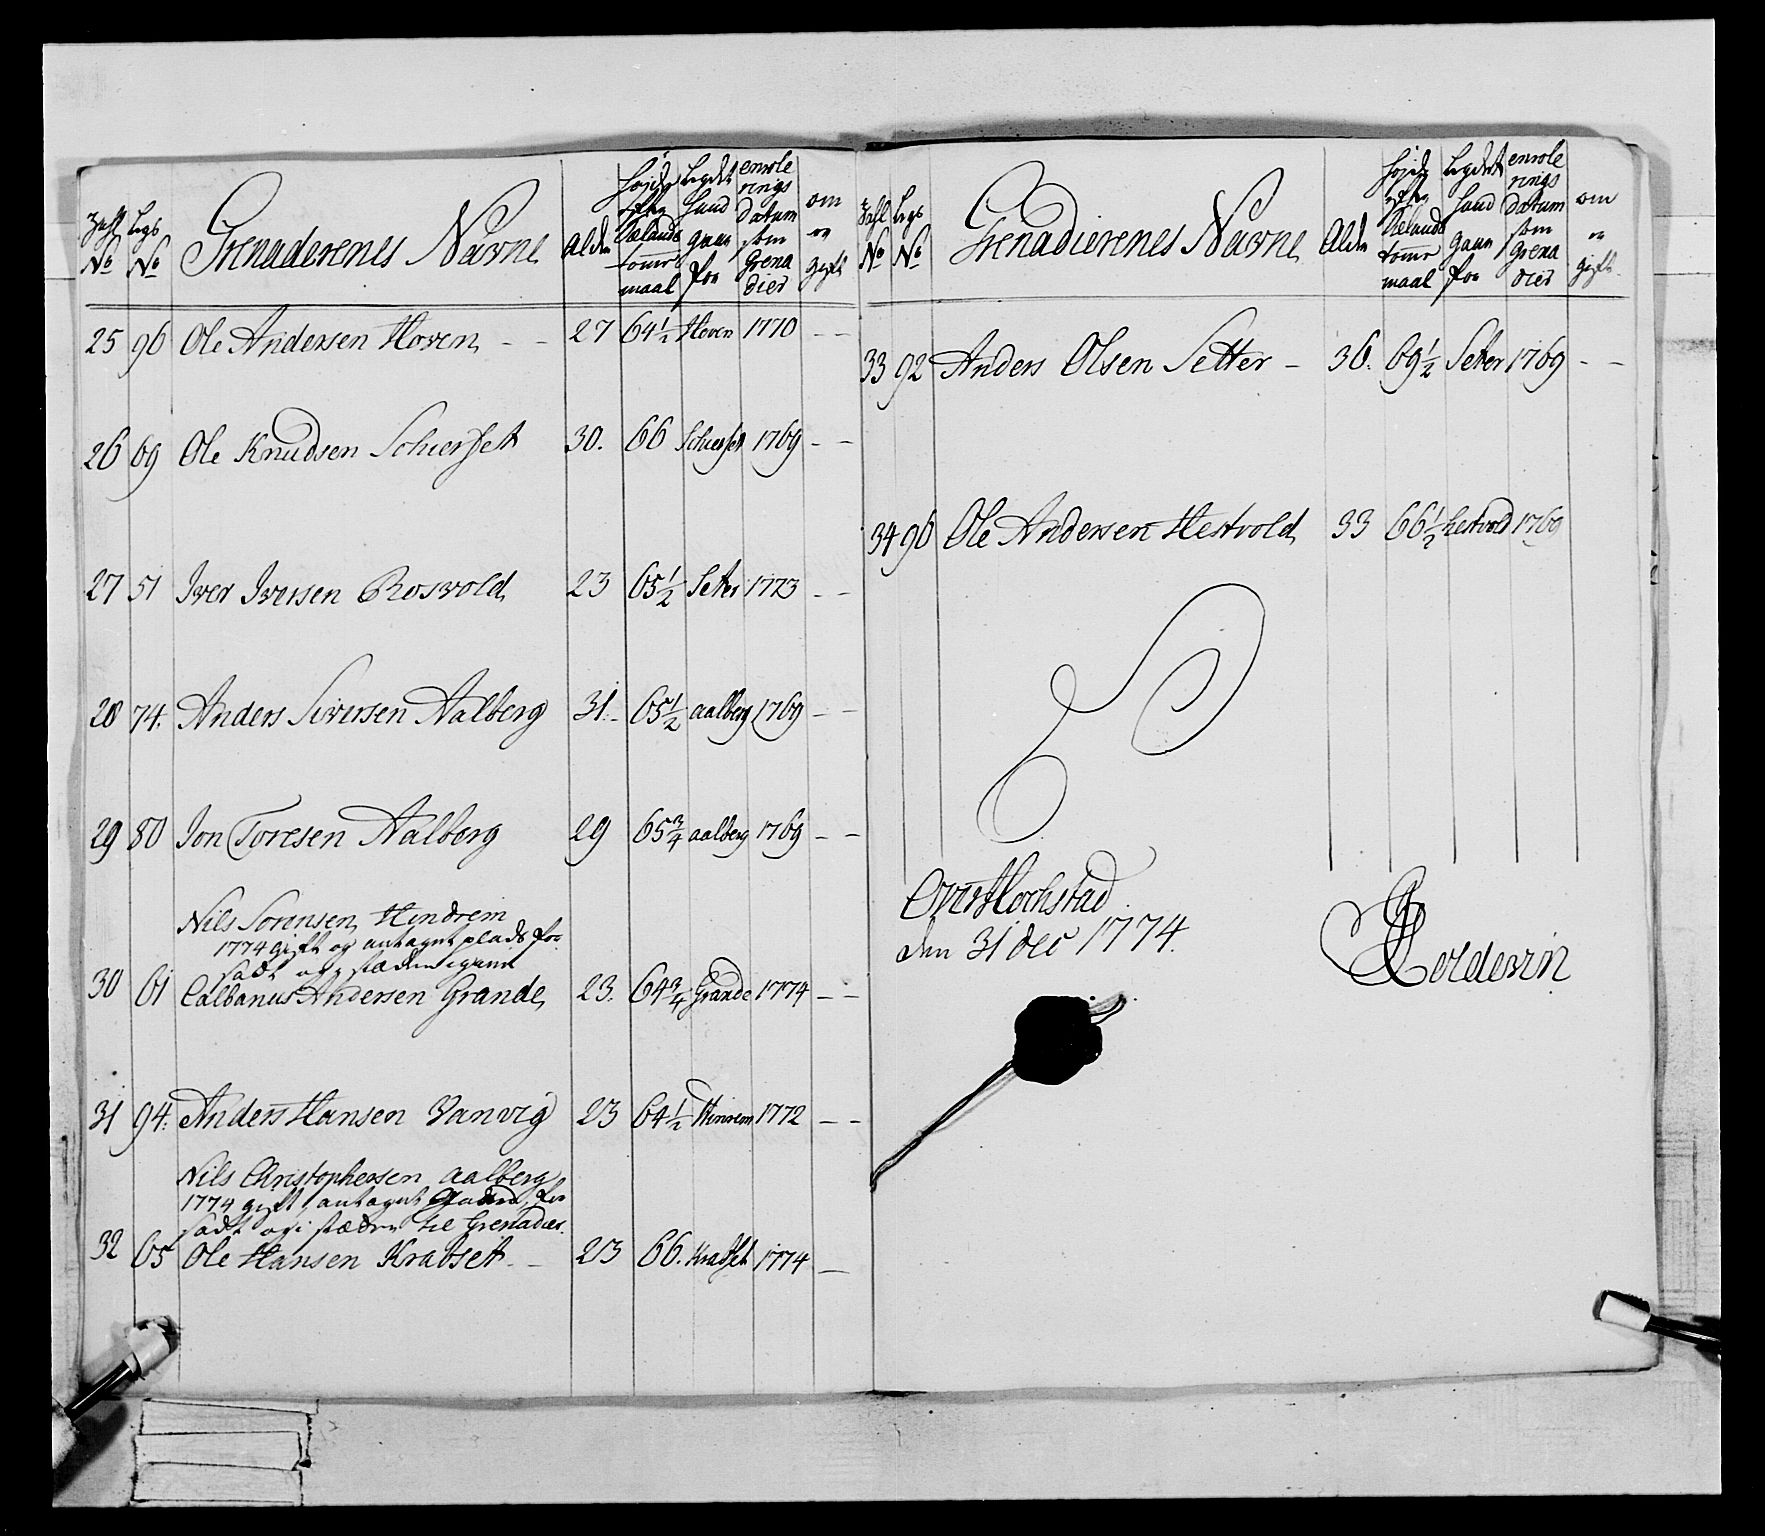 Zahl No
Legs No
Grenaderenes Navne
Alder
Højde efter Sælands tomme maal
Legdet hand gaar for
enrolerings Datum som Grenadier
om er gift
25 96 Ole Andersen Hoven - - 27 64½ Hoven 1770 - -
26 69 Ole Knudsen Schierset 30. 66 Schierset 1769 - -
27 51 Iver Iversen Rosvold 23 65½ Seter 1773 - -
28 74. Anders Siversen Aalberg 31. 65½ aalberg 1769 - -
29 80 Jon Toresen Aalberg 29 65¾ aalberg 1769 - -
Nils Sorensen Hindrem
1774 gift og antaget plads for
sadt og i stæden igien
30 61 Calbanus Andersen Grande 23. 64¾ Grande 1774 - -
31 94. Anders Hansen Vanvig 23 64½ Hinrem 1772 - -
Nils Christophersen aalberg
1774 gift, antaget Gaard. for
sadt og i stæden til Grenadier.
32 65 Ole Hansen Krabset - 23 66. Krabset 1774 -
Zahl No
Legs No
Grenadierenes Navne
Alder
Højde efter Sælands tomme maal
Legdet hand gaar for
enrolerings Datum som Grenadier
om er gift
33 92 Anders Olsen Setter - 36. 69½ Seter 1769 - -
34 96 Ole Andersen Hestvold 33 66½ hestvold 1769
Over Hochstad
den 31 dec 1774.
Colderin